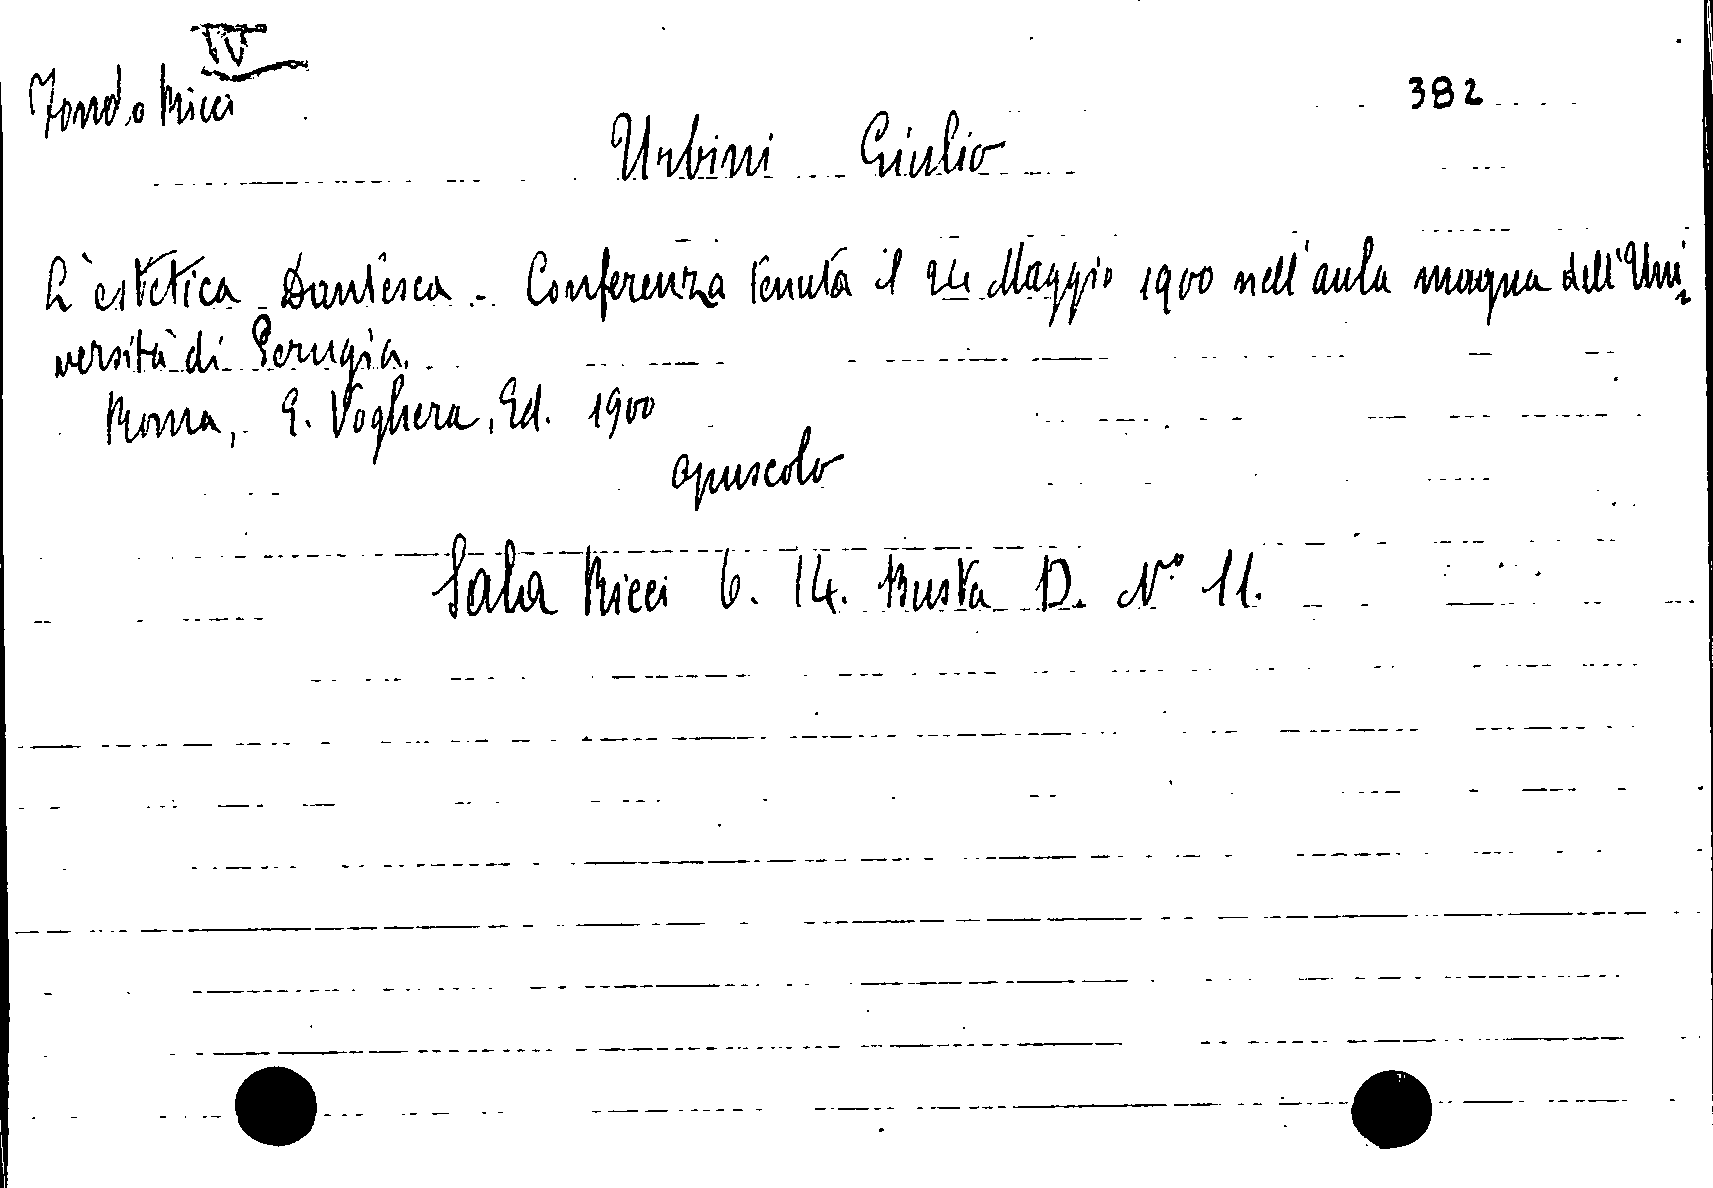 IV
Fondo Ricci
382
Urbini Giulio
L'estetica Dantesca - Conferenza tenuta il 24 Maggio 1900 nell'aula magna dell'Uni-
versità di Perugia.
Roma, E. Voghera, Ed. 1900
opuscolo
Sala Ricci 6. 14. Busta D. N° 11.